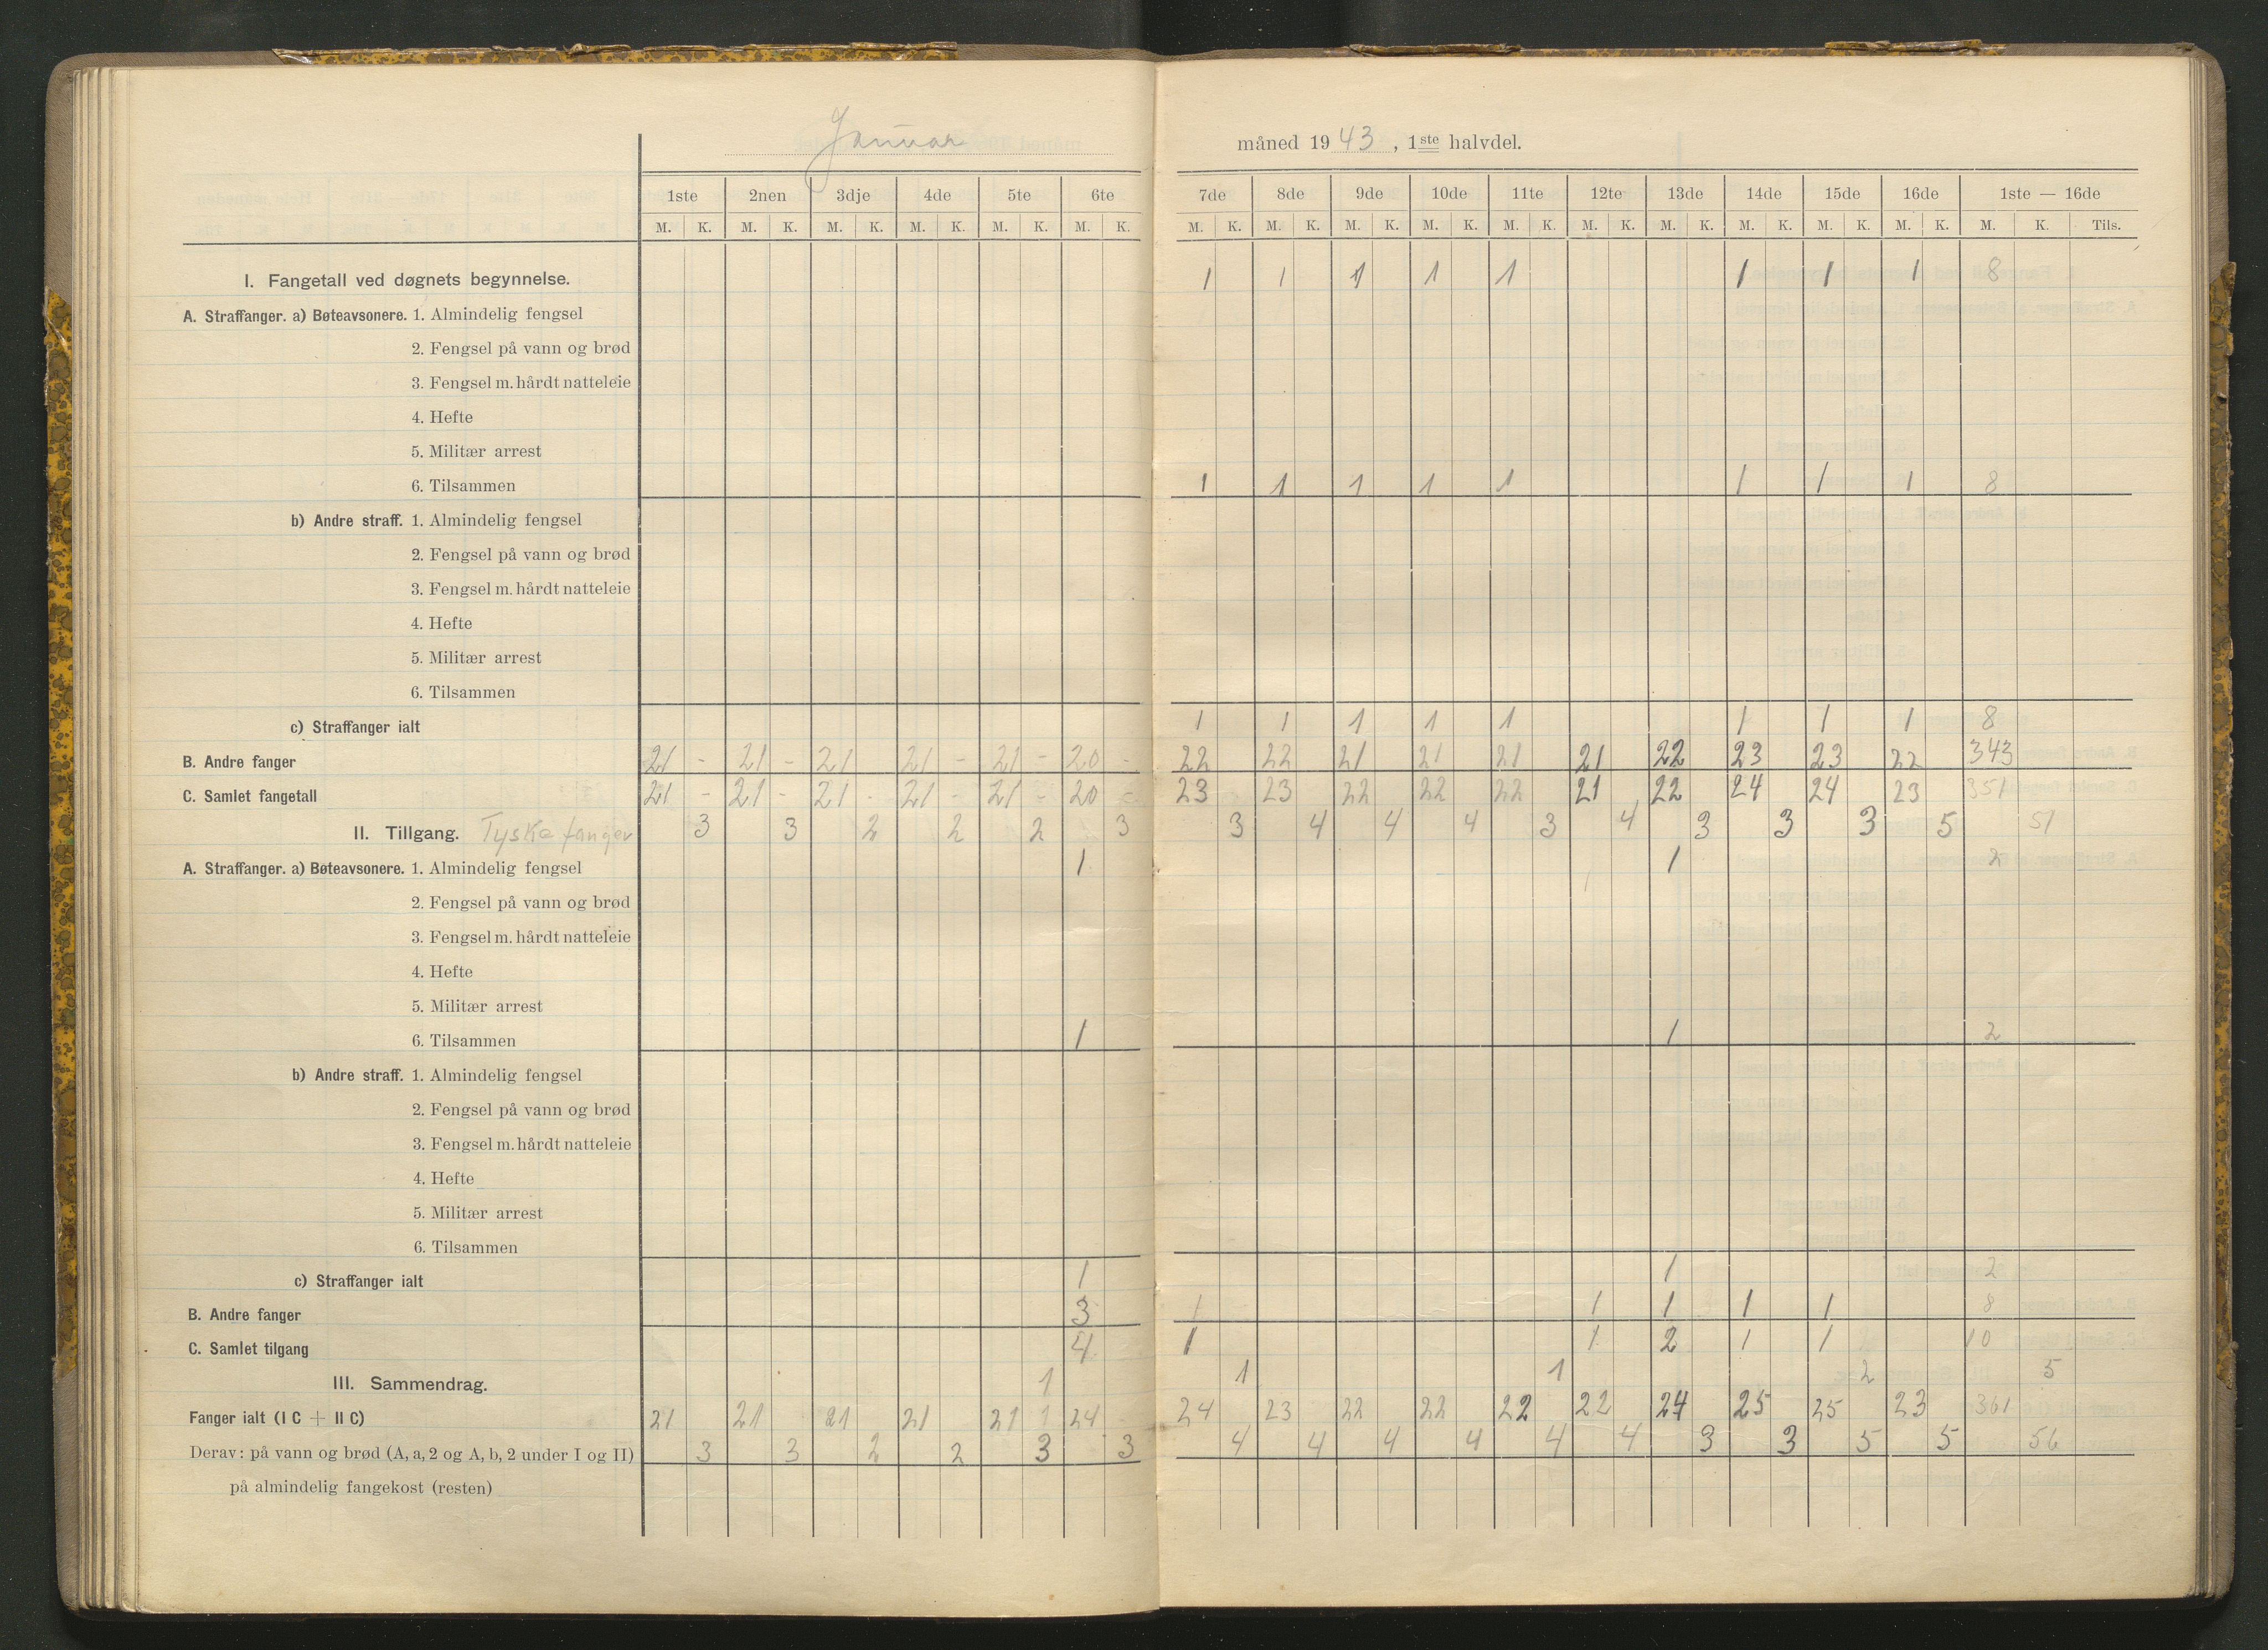 Januar måned 1943, 1ste halvdel.
1ste 2nen 3dje 4de 5te 6te 7de 8de 9de 10de 11te 12te 13de 14de 15de 16de 1ste — 16de
M. K. M. K. M. K. M. K. M. K. M. K. M. K. M. K. M. K. M. K. M. K. M. K. M. K. M. K. M. K. M. K. M. K. Tils.
I. Fangetall ved døgnets begynnelse. 1 1 1 1 1 1 1 1 8
A. Straffanger. a) Bøteavsonere. 1. Almindelig fengsel
2. Fengsel på vann og brød
3. Fengsel m. hårdt natteleie
4. Hefte
5. Militær arrest
6. Tilsammen 1 1 1 1 1 1 1 1 8
b) Andre straff. 1. Almindelig fengsel
2. Fengsel på vann og brød
3. Fengsel m. hårdt natteleie
4. Hefte
5. Militær arrest
6. Tilsammen
c) Straffanger ialt 1 1 1 1 1 1 1 1 8
B. Andre fanger 21 - 21 - 21 21 - 21 - 20 - 22 22 21 21 21 21 22 23 23 22 343
C. Samlet fangetall 21 - 21 - 21 - 21 - 21 - 20 - 23 23 22 22 22 21 22 24 24 23 351
II. Tillgang. Tyske fanger 3 3 2 2 2 3 3 4 4 4 3 4 3 3 3 5 51
A. Straffanger. a) Bøteavsonere. 1. Almindelig fengsel 1 1 2
2. Fengsel på vann og brød
3. Fengsel m. hårdt natteleie
4. Hefte
5. Militær arrest
6. Tilsammen 1 1 2
b) Andre straff. 1. Almindelig fengsel
2. Fengsel på vann og brød
3. Fengsel m. hårdt natteleie
4. Hefte
5. Militær arrest
6. Tilsammen
c) Straffanger ialt 1 1 2
B. Andre fanger 3 1 1 1 1 1 8
C. Samlet tilgang 4 1 1 2 1 1 10
III. Sammendrag. 1 1 1 2 5
Fanger ialt (I C + II C) 21 21 21 21 21 1 24 24 23 22 22 22 22 24 25 25 23 361
Derav: på vann og brød (A, a, 2 og A, b, 2 under I og II) 3 3 2 2 3 3 4 4 4 4 4 4 3 3 5 5 56
på almindelig fangekost (resten)